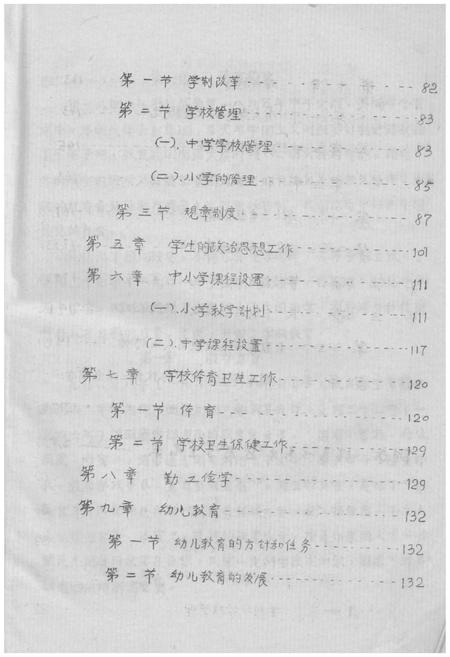 第一节 学制改革 82
第二节 学校管理 83
(一).中学学校管理 83
(二).小学的管理 85
第三节 规章制度 87
第五章 学生的政治思想工作 101
第六章 中小学课程设置 111
(一).小学教学计划 111
(二).中学课程设置 117
第七章 学校体育卫生工作 120
第一节 体育 120
第二节 学校卫生保健工作 129
第八章 勤工俭学 129
第九章 幼儿教育 132
第一节 幼儿教育的方针和任务 132
第二节 幼儿教育的发展 132